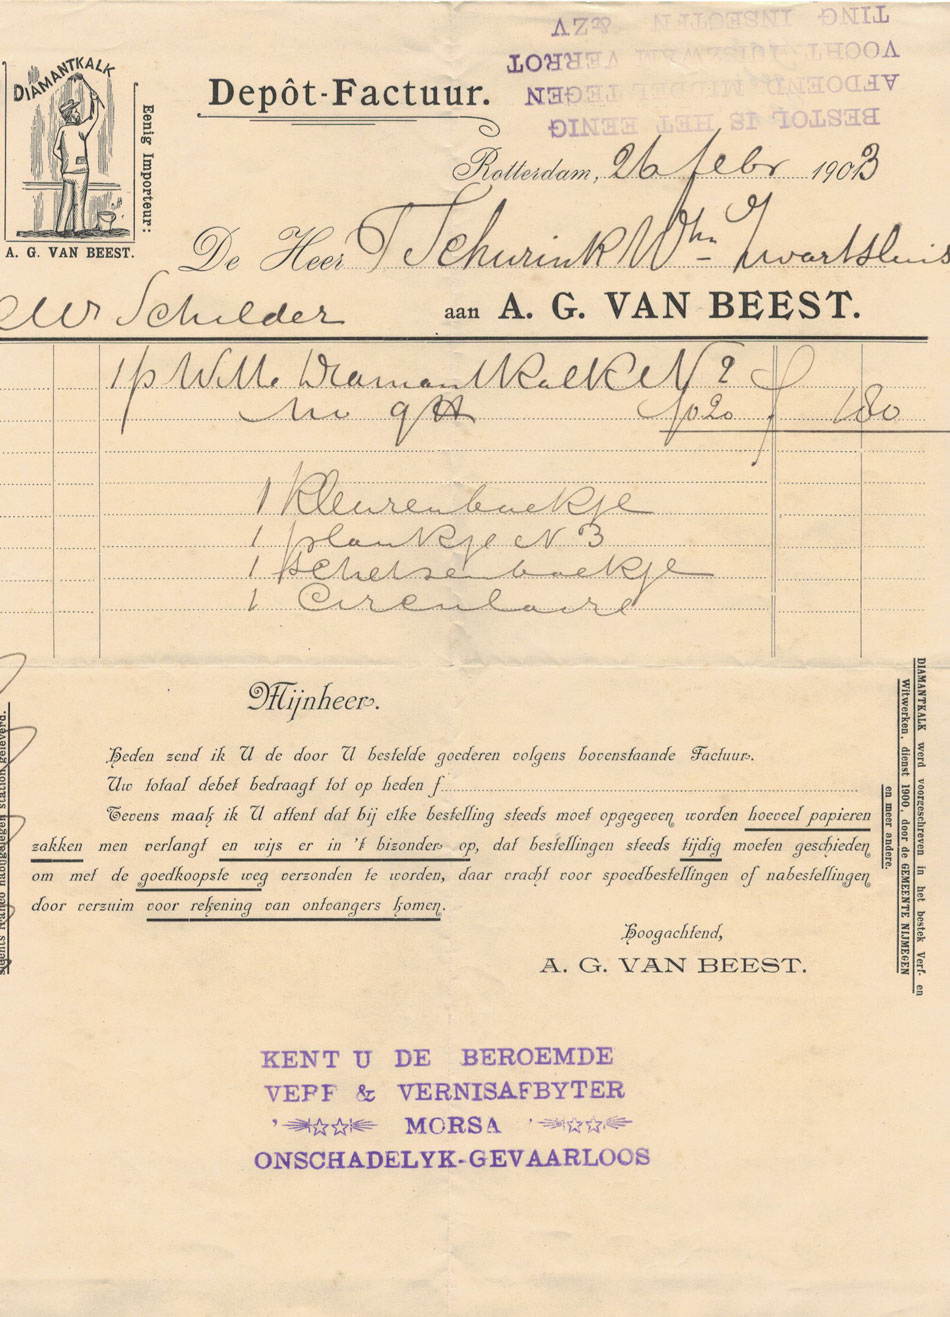 BESTOL IS HET EENIG
AFDOEND MIDDEL TEGEN
VOCHT HUISZWAM VERROT
TING INSECTEN &ZV
DIAMANTKALK
Eenig Importeur:
A. G. VAN BEEST.
Depôt-Factuur.
Rotterdam, 26 febr 1903
De Heer T Schurink Whn Zwartsluis
Mr Schilder aan A. G. VAN BEEST.
1/p Witte Diamantkalk N 2
9 1/2 020 f 180
1 Kleurenboekje
1 plankje N 3
1 schetsenboekje
1 Circulaire
Mijnheer.
Heden zend ik U de door U bestelde goederen volgens bovenstaande Factuur.
Uw totaal debet bedraagt tot op heden f
Tevens maak ik U attent dat bij elke bestelling steeds moet opgegeven worden hoeveel papieren
zakken men verlangt en wijs er in 't bizonder op, dat bestellingen steeds tijdig moeten geschieden
om met de goedkoopste weg verzonden te worden, daar vracht voor spoedbestellingen of nabestellingen
door verzuim voor rekening van ontvangers komen.
Hoogachtend,
A. G. VAN BEEST.
DIAMANTKALK werd voorgeschreven in het bestek Verf- en
Witwerken, dienst 1900, door de GEMEENTE NIJMEGEN
en meer andere.
franco nabijgelegen station geleverd.
KENT U DE BEROEMDE
VERF & VERNISAFBYTER
MORSA
ONSCHADELYK-GEVAARLOOS